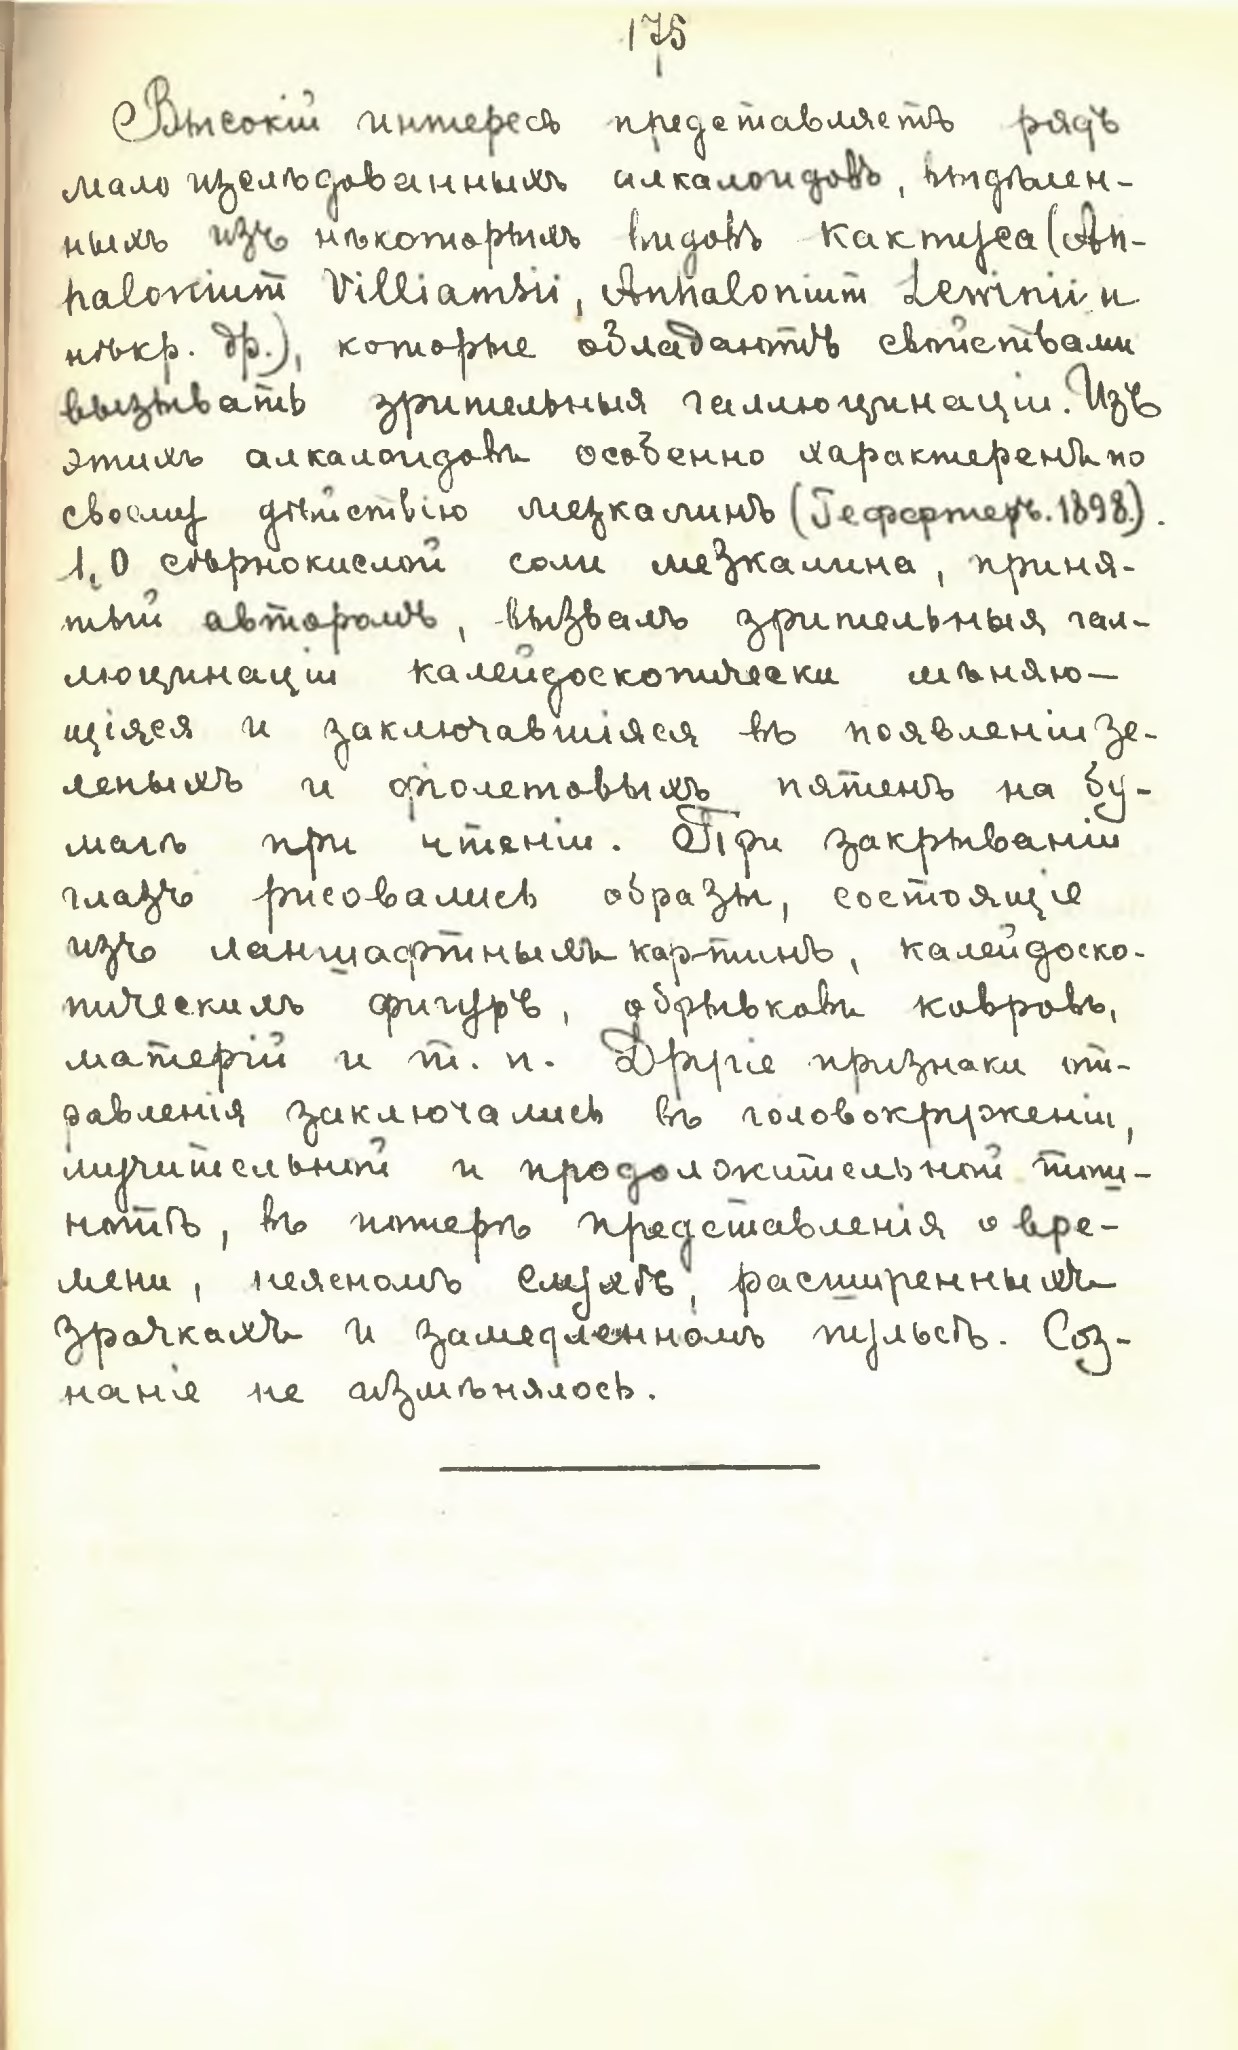 175
Высокій интересъ представляетъ рядъ
мало изслѣдованныхъ алкалоидовъ, выдѣлен-
ныхъ изъ нѣкоторыхъ видовъ кактуса (An-
halonium Villiamsii, Anhalonium Lewinii и
нѣкр. др.), которые обладаютъ свойствами
вызывать зрительныя галлюцинаціи. Изъ
этихъ алкалоидовъ особенно характеренъ по
своему дѣйствію мезкалинъ (Гефтеръ. 1898.).
1,0 сѣрнокислой соли мезкалина, приня-
тый авторомъ, вызвалъ зрительныя гал-
люцинаціи калейдоскопически мѣняю-
щіяся и заключавшіяся въ появленіи зе-
леныхъ и фіолетовыхъ пятенъ на бу-
магѣ при чтеніи. При закрываніи
глазъ рисовались образы, состоящіе
изъ ланшафтныхъ картинъ, калейдоско-
пическихъ фигуръ, обрывковъ ковровъ,
матерій и т. п. Другіе признаки от-
равленія заключались въ головокруженіи,
мучительной и продолжительной тош-
нотѣ, въ потерѣ представленія о вре-
мени, неясномъ слухѣ, расширенныхъ
зрачкахъ и замедленномъ пульсѣ. Соз-
наніе не измѣнялось.